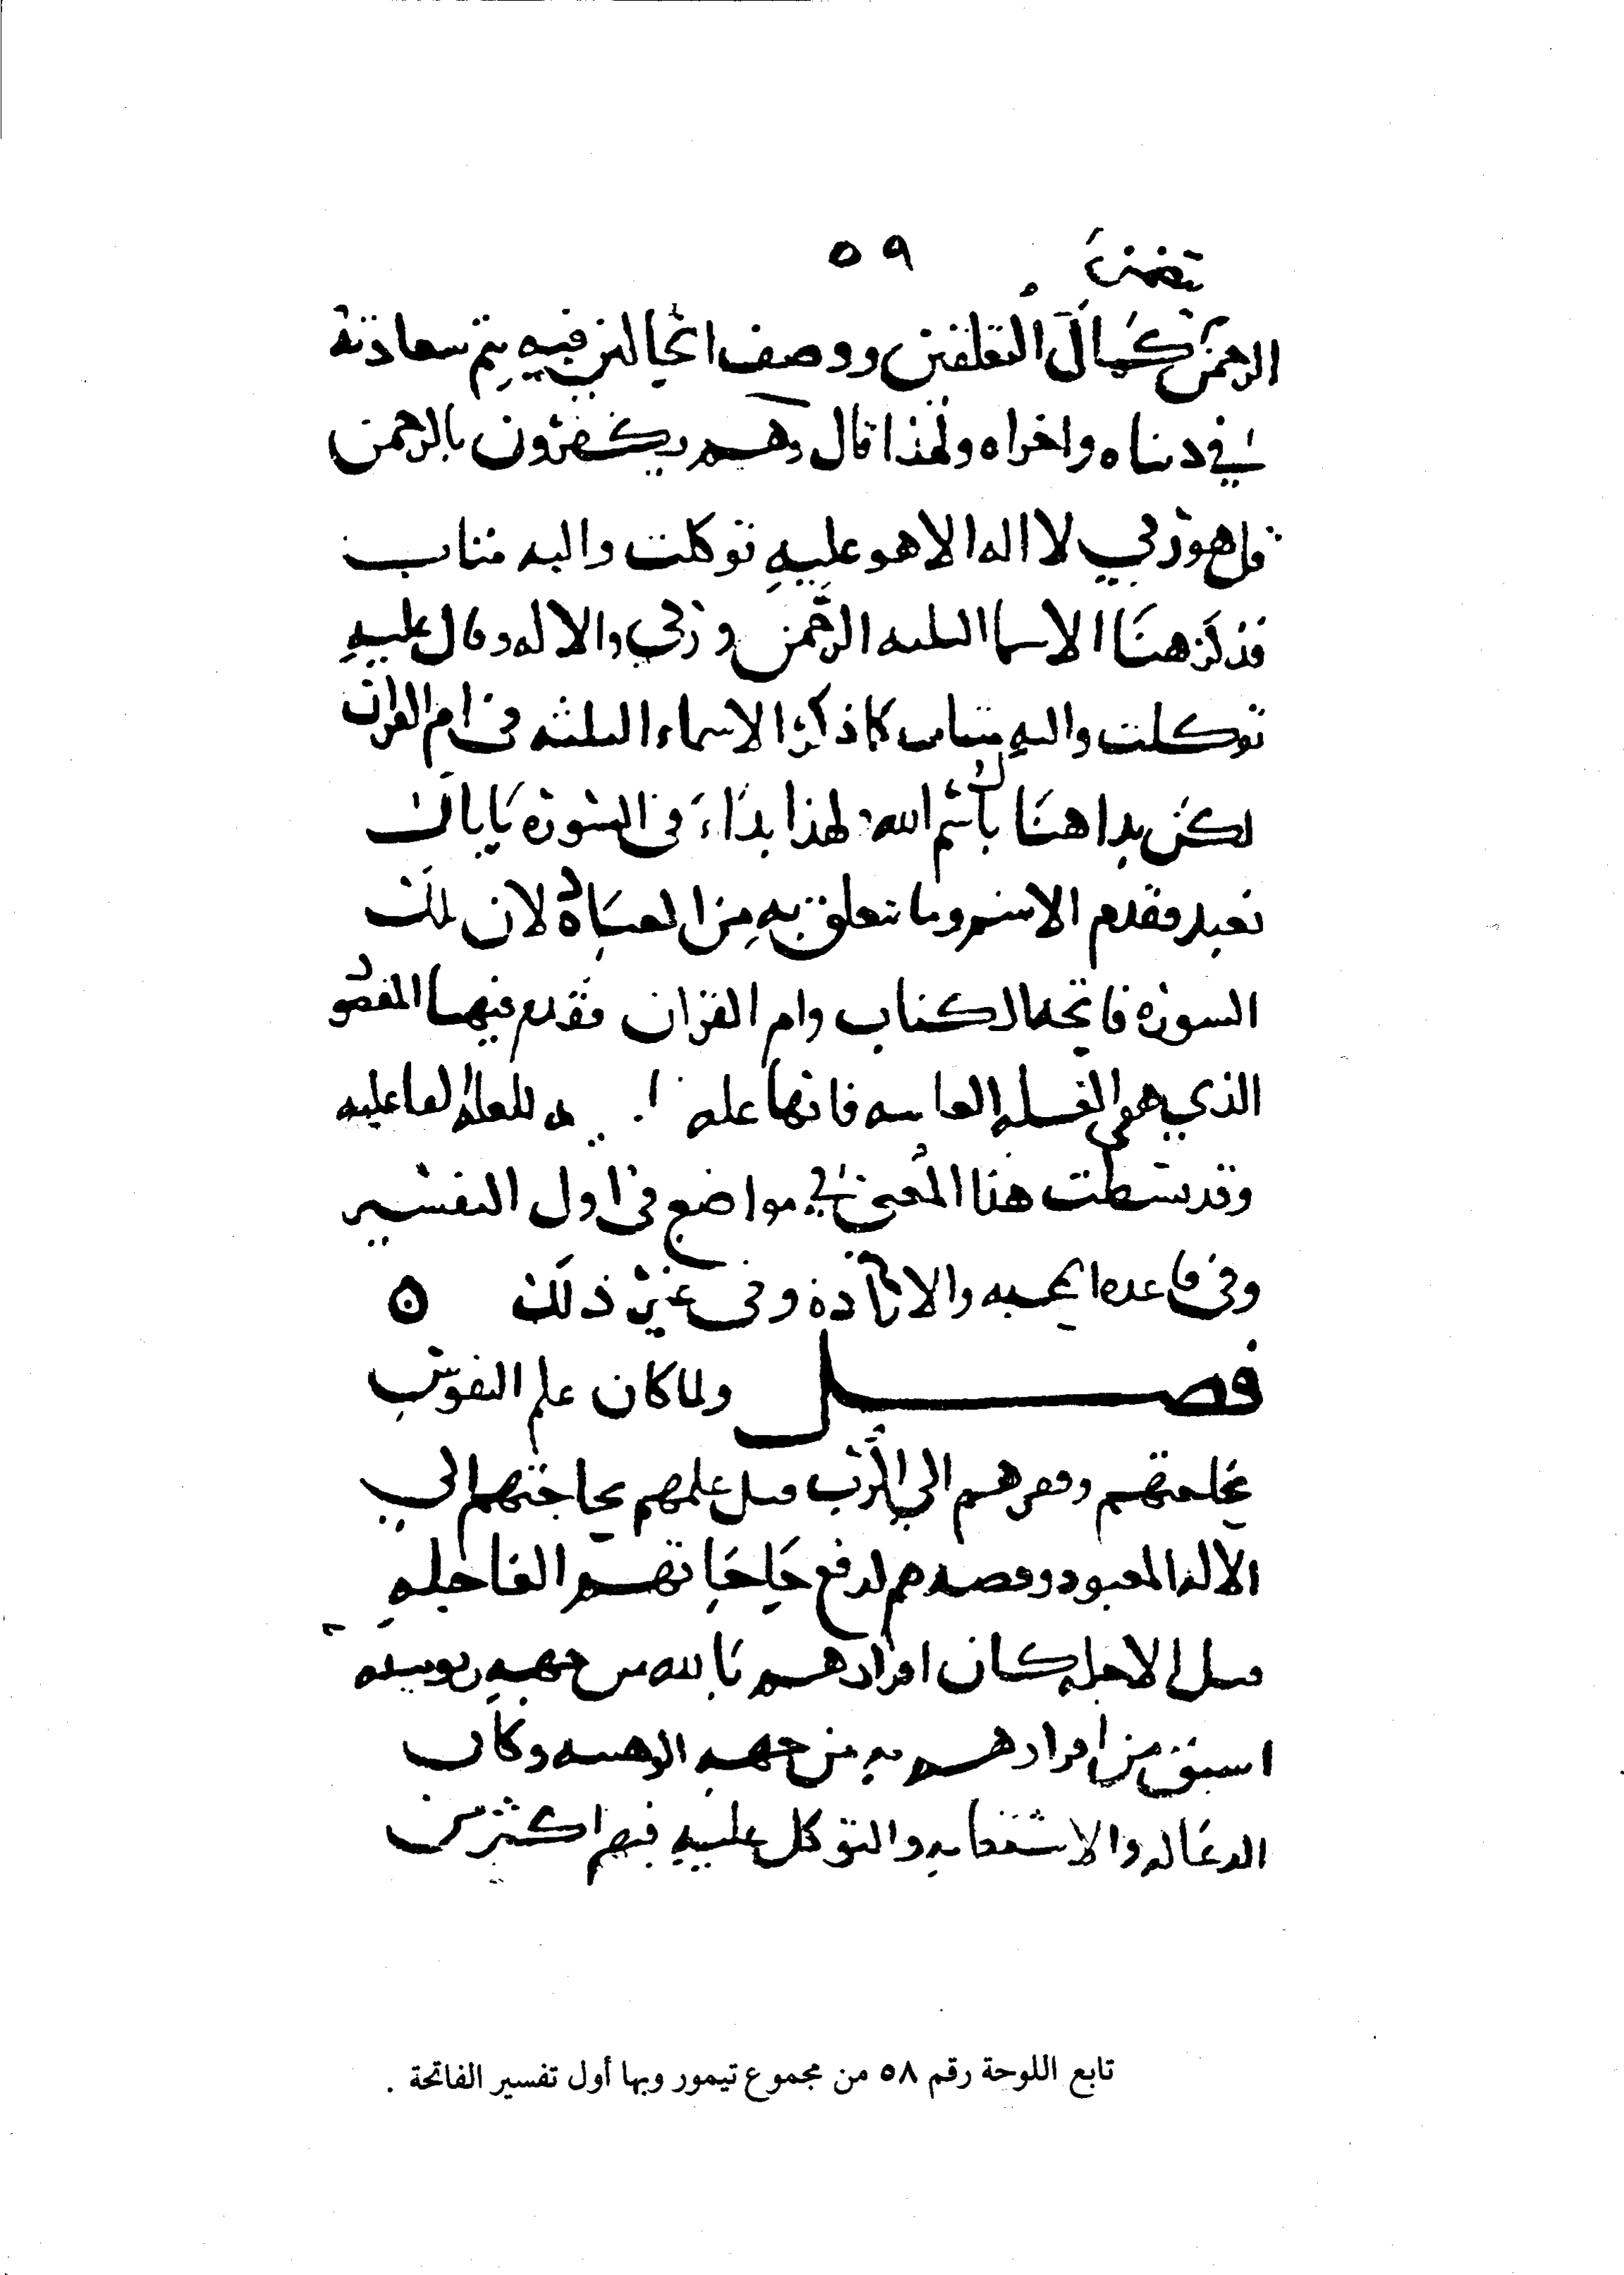 ٥٩
تضمن
الرحمن كمال التعلقين ووصف الحالين فيه يتم سعادته
في دنياه واخراه ولهذا قال وهم يكفرون بالرحمن
قل هو ربي لا اله الا هو عليه توكلت واليه متاب
فذكر هنا الاسما الثلثه الرحمن وربي والاله وقال عليه
توكلت واليه متاب كما ذكر الاسماء الثلثه في ام القران
لكن بدا هنا باسم الله لهذا بداء في السوره باياك
نعبد فقدم الاسم وما يتعلق به من العباده لان تلك
السوره فاتحه الكتاب وام القران فقدم فيها المقصود
الذي هو العله الغاييه فانها عله للعله الفاعليه
وقد بسطت هذا المعنى في مواضع في اول التفسير
وفي قاعده المحبه والاراده وفي غير ذلك ه
فصل ولما كان علم النفوس
بحاجتهم وفقرهم الي الرب قبل علمهم بحاجتهم الي
الاله المعبود وقصدهم لدفع حاجاتهم العاجله
قبل الاجله كان اقرارهم بالله من جهه ربوبيته
اسبق من اقرارهم به من جهه الوهيته وكان
الدعا له والاستعانه به والتوكل عليه فيهم اكثر من
تابع اللوحة رقم ٥٨ من مجموع تيمور وبها أول تفسير الفاتحة .